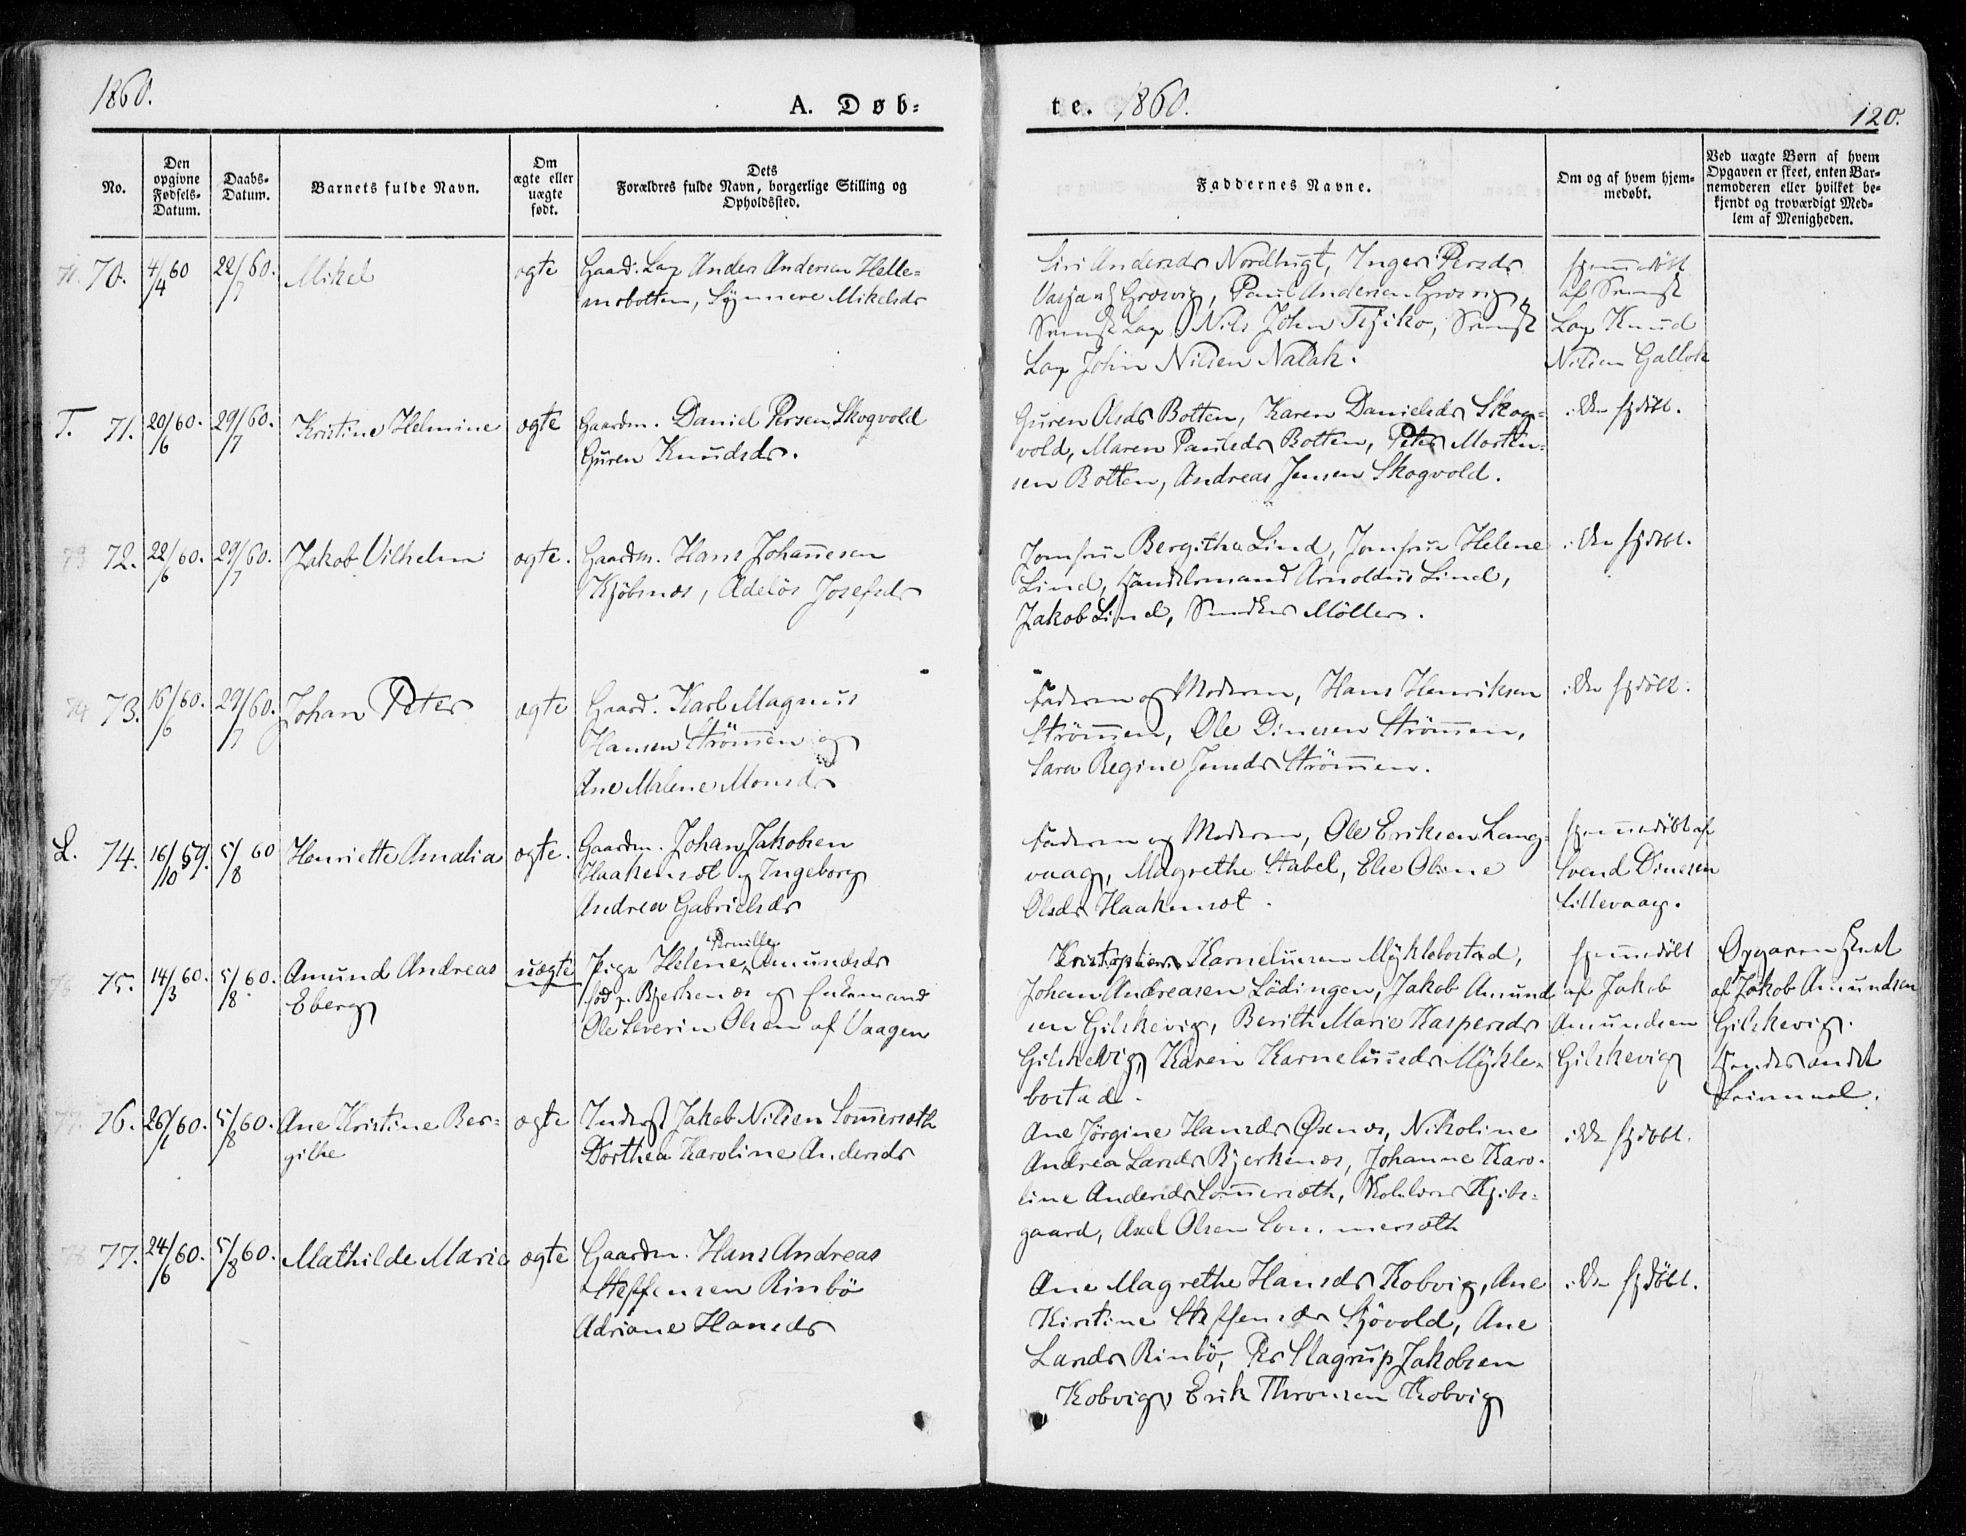 1860.
A. Døb=
te. 1860.
120.
No.
Den
opgivne
Fødsels-
Datum.
Daabs-
Datum.
Barnets fulde Navn.
Om
ægte eller
uægte
født.
Dets
Forældres fulde Navn, borgerlige Stilling og
Opholdssted.
Faddernes Navne.
Om og af hvem hjem-
medøbt.
Ved uægte Børn af hvem
Opgaven er skeet, enten Bar-
nemoderen eller hvilket be-
kjendt og troværdigt Med-
lem af Menigheden.
70. 4/4 60 22/7 60. Mikel ægte
Gaard. Lap Anders Andersen Helle=
mobotten, Synnere Mikelsdr
Siri Andersdr Nordbugt, Inger Persdr
Grøsvig, Paul Andersen Grøsvig,
Svensk Lap Nils John Tjiko, Svensk
Lap John Nilsen Nalak.
hjemmedøbt
af Svensk
Lap Knud
Nilsen Gallok
T. 71. 20/6 60. 29/7 60. Kristine Helmine ægte
Gaardm. Daniel Persen Skogvold
Guren Knudsdr.
Guren Olsdr Botten, Karen Danielsdr Skog=
vold, Maren Paulsdr Botten, Peter Morten=
sen Botten, Andreas Jensen Skogvold.
ikke hjdøbt.
72. 22/6 60. 29/7 60. Jakob Vilhelm ægte.
Gaardm. Hans Johannesen
Kjöbsnæs, Adelös Josefsdr
Jomfrue Bergitha Lind, Jomfrue Helene
Lind, Handelsmand Arnoldus Lind,
Jakob Lind, Snedker Möller.
ikke hjdøbt.
73. 16/6 60. 29/7 60. Johan Peter ægte
Gaard. Karl Magnus
Hansen Strömmen og
Ane Malene Monsdr
Faderen og Moderen, Hans Henriksen
Strömmen, Ole Dinesen Strömmen,
Sara Regine Jensdr Strömmen.
ikke hjdøbt.
L. 74. 16/10 59. 5/8 60 Henriette Amalia ægte.
Gaardm. Johan Jakobsen
Haakensæt og Ingeborg
Andrea Gabrielsdr
Faderen og Moderen, Ole Eriksen Lang=
vaag, Magrethe Stabel, Else Oline
Olsdr Haakensæt.
hjemmedøbt af
Svend Dinesen
Lillevaag.
75. 14/3 60. 5/8 60. Amund Andreas
Eberg
uægte
Pernille
Pige Helene Amundsdr
fød p. Bjerkenæs og Enkemand
Ole Severin Olsen af Vaagen
Kristopher Karneliusen Myklebostad,
Johan Andreasen Lödingen, Jakob Amund
sen Gilskevig, Berith Marie Kaspersdr
Gilskevig, Karen Karneliusdr Mykle=
bostad.
hjemmedøbt
af Jakob
Amundsen
Gilskevig
Opgaven skeet
af Jakob Amundsen
Gilskevig.
Hendes andet
Leiermaal.
76. 26/1 60. 5/8 60. Ane Kristine Ber=
githe
ægte
Inderst Jakob Nilsen Sommersæth
Dorthea Karoline Andersdr
Ane Jörgine Hansdr Osnæs, Nikoline
Andrea Larsdr Bjerkenæs, Johanne Karo=
line Andersdr Sommersæth,
gaard, Axel Olsen Sommersæth
ikke hjdøbt.
77. 24/6 60. 5/8 60. Mathilde Marie ægte
Gaardm. Hans Andreas
Steffensen Rinbö
Adriane Hansdr
Ane Magrethe Hansdr Kobvig, Ane
Kirstine Steffensdr Sjövold, Ane
Larsdr Rinbö, Per Slagrup Jakobsen
Kobvig, Erik Thronsen Kobvig
ikke hjdøbt.